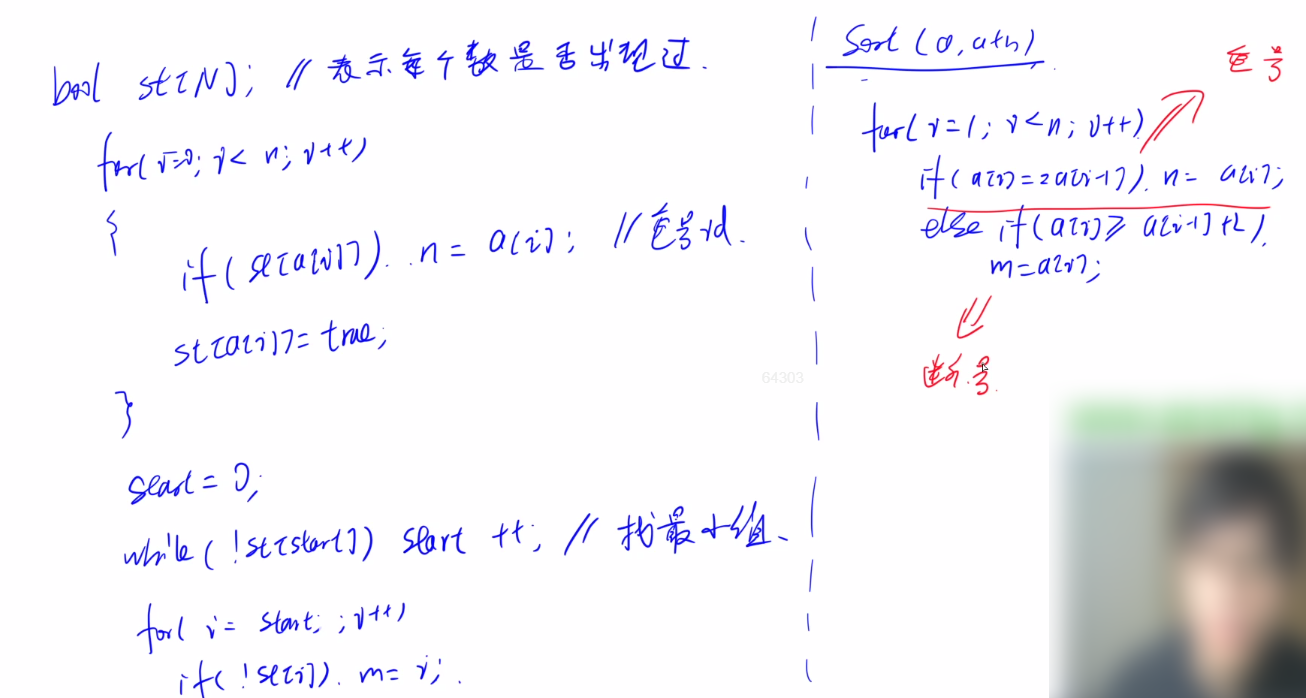 bool st[N]; // 表示每个数是否出现过.
for(i=0; i< n; i++)
{
if( st[a[i]] ). n = a[i]; // 重号id.
st[a[i]]= true;
}
start = 0;
while( !st[start]) start ++; // 找最小值、
for( i= start; ; i++)
if( !st[i]). m= i;
64303
Sort (a, a+n)
for( i=1; i<n; i++)
重号
if( a[i]==a[i-1]). n= a[i];
else if(a[i]≥ a[i-1]+2).
m=a[i];
断号.